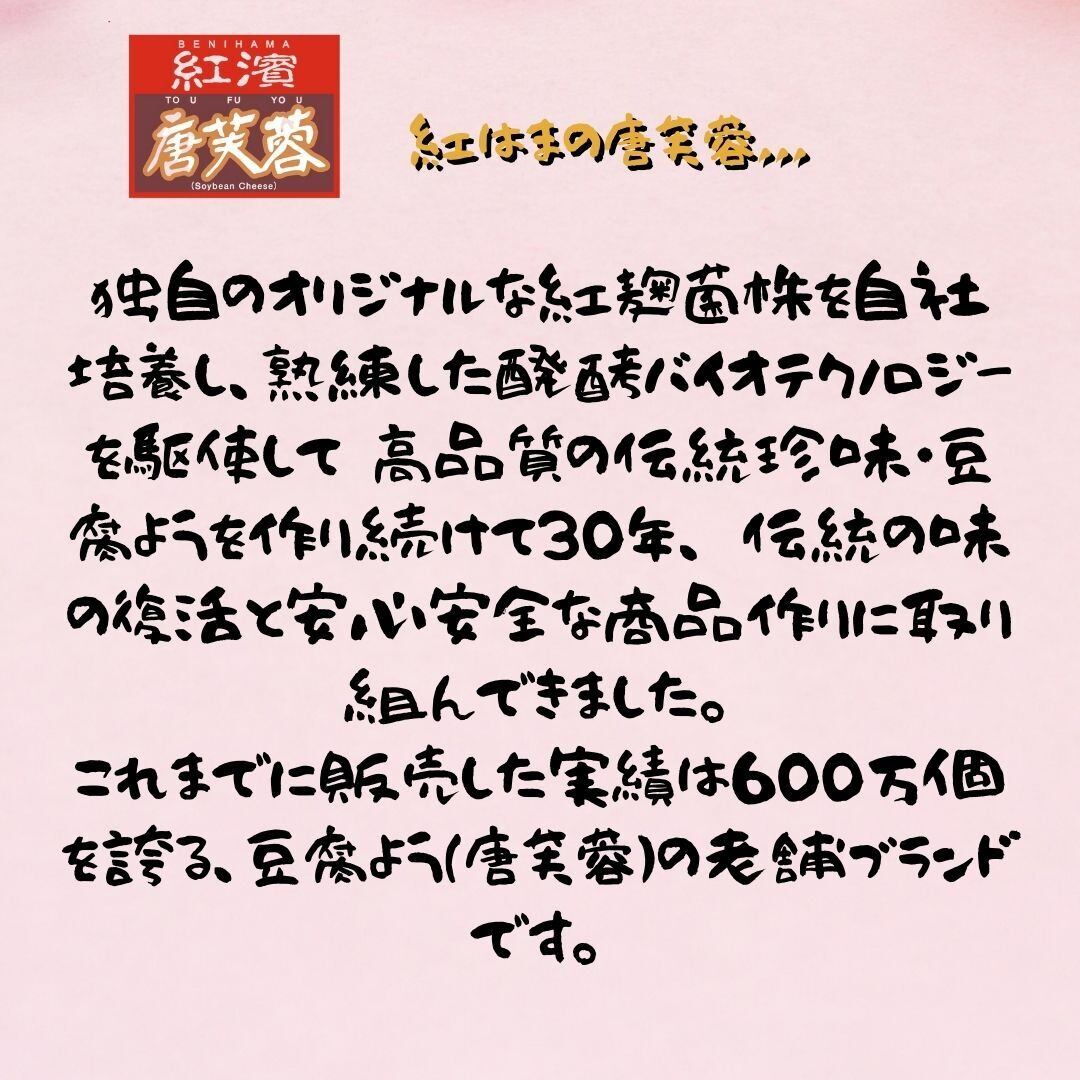 BENIHAMA
紅濱
TOU FU YOU
唐芙蓉
(Soybean Cheese)
紅はまの唐芙蓉,,,
独自のオリジナルな紅麹菌株を自社
培養し、熟練した醗酵バイオテクノロジー
を駆使して 高品質の伝統珍味・豆
腐ようを作り続けて30年、 伝統の味
の復活と安心安全な商品作りに取り
組んできました。
これまでに販売した実績は600万個
を誇る、豆腐よう(唐芙蓉)の老舗ブランド
です。